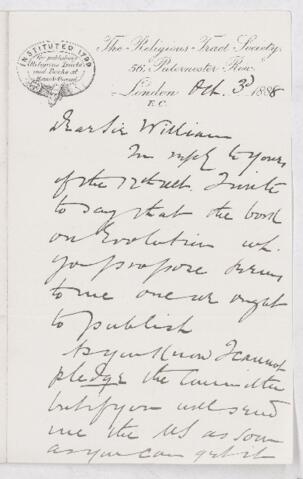 INSTITUTED 1799
for publishing
Religious Tracts
and Books at
Home & Abroad
The Religious Tract Society
56, Paternoster Row,
London Oct. 3d 1888
E.C.
Dear Sir William
In reply to yours
of the 12th ult. I write
to say that the book
on Evolution wh.
you propose seems
to me one we ought
to publish
As you know I cannot
pledge the Committee
but if you will send
me the MS as soon
as you can get it